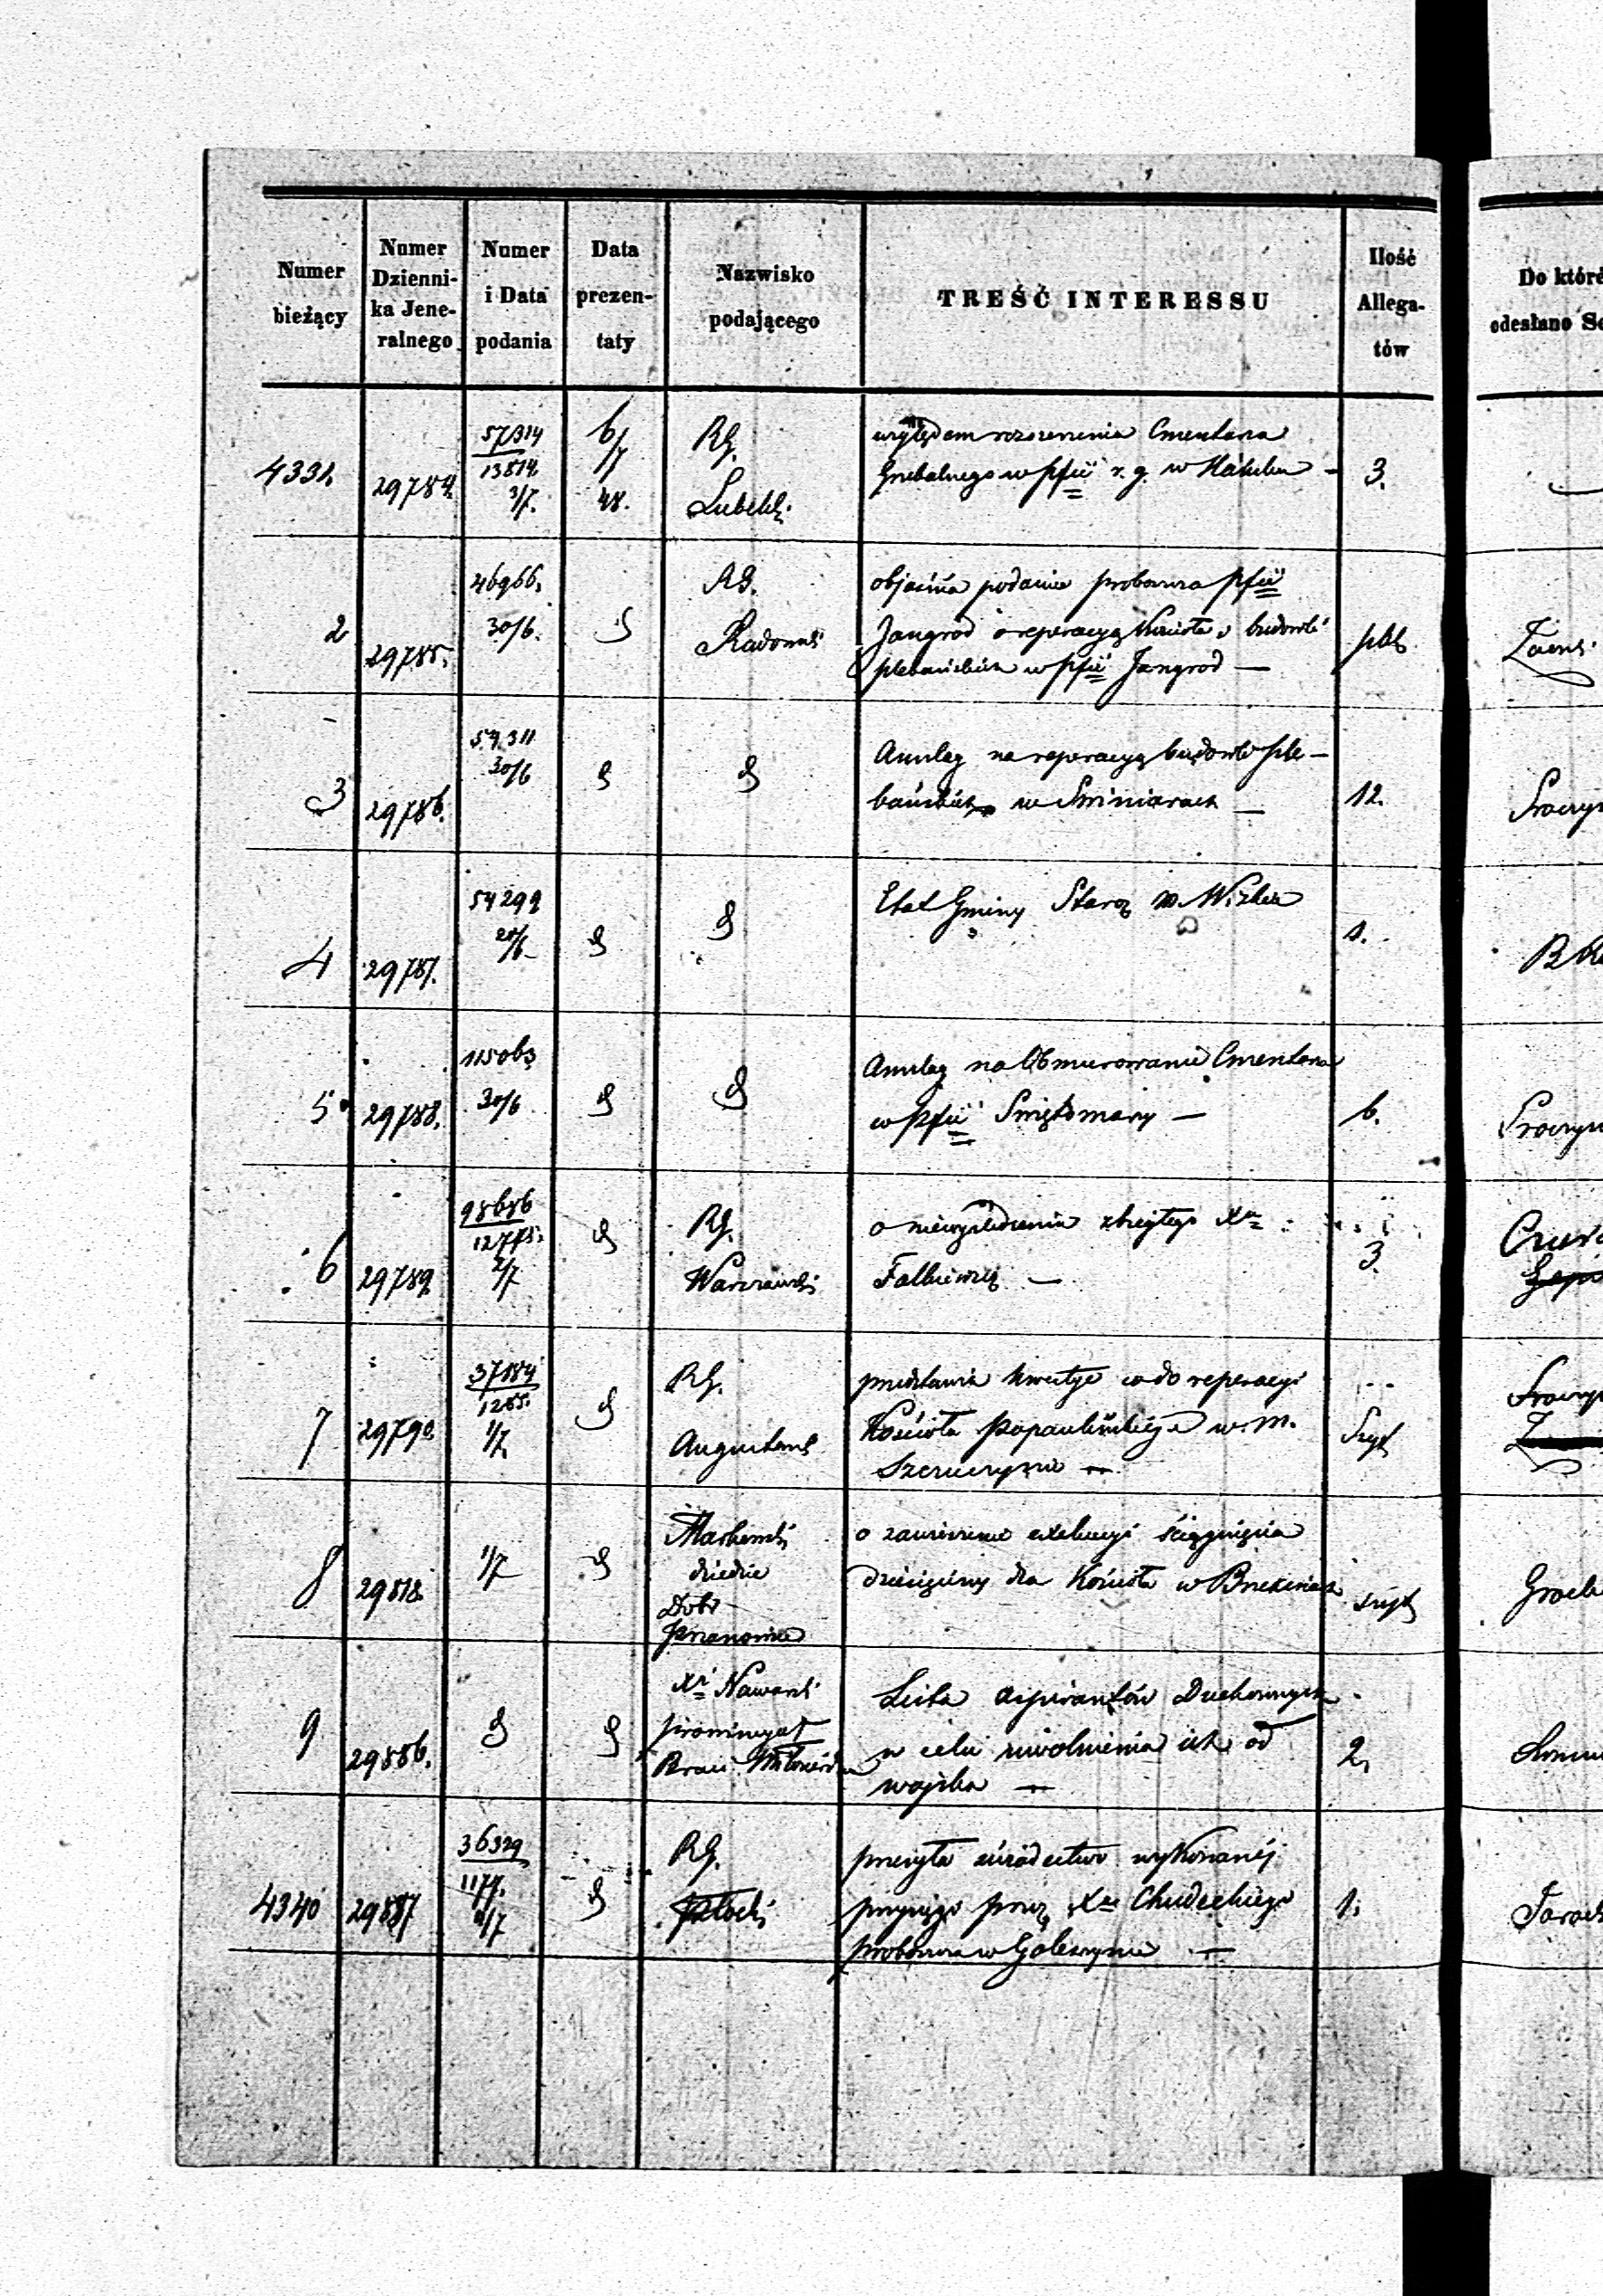 Numer bieżący
Numer Dzienni-ka Jene-ralnego
Numer i Data podania
Data prezen-taty
Nazwisko podającego
TREŚĆ INTERESSU
Ilość Allega-tów
Do któré
odesłano Se
4331.
29784.
57314
13814
3/7.
6/7
48.
RG.
Lubelski
względem rozszerzenia Cmentarza
Grzebalnego w pfii r. g. w
3.
2
29785.
46966.
30/6.
RG.
Radomski
objaśnia podanie proboszcza pfii
Jangrod o reperacyą Kościoła i budowli
plebańskich w pfii Jangrod —
plik
3
29786.
54311
30/6
Anszlag na reperacyą budowli ple-
bańskich w Swiniarach —
12.
4
29787.
54299
20/6
Etat Gminy Staroz w. m. Wiślica
1.
5
29788.
115063
30/6
Anszlag na Obmurowanie Cmentarza
w pfii Swiętomarz —
6.
6
29789
98686
12775.
2/7
RG.
Warszawski
o niewyśledzeniu zbiegłego Xa
Falkiewicz —
3.
7
29790
37184
1285.
1/7
RG.
Augustows
przedstawia kwestye co do reperacyi
Kościoła popaulińskiego w. m.
Szczuczynie —
Szyt
8
29818.
1/7
dziedzic
Dobr
o zawieszenie exekucyi ściągnięcia
dziesięciny dla Kościoła w
szyt
9
29886.
Xi Nawarski
prowincyał
Braci Miłosierdzia
Lista aspirantów Duchownych
w celu uwolnienia ich od
wojska —
2.
4340
29887
36329
1177.
2/7
RG.
Płocki
przesyła świadectwo wykonanéj
przysięgi przez Xa Chudeckiego
proboszcza w Goleszynie —
1.